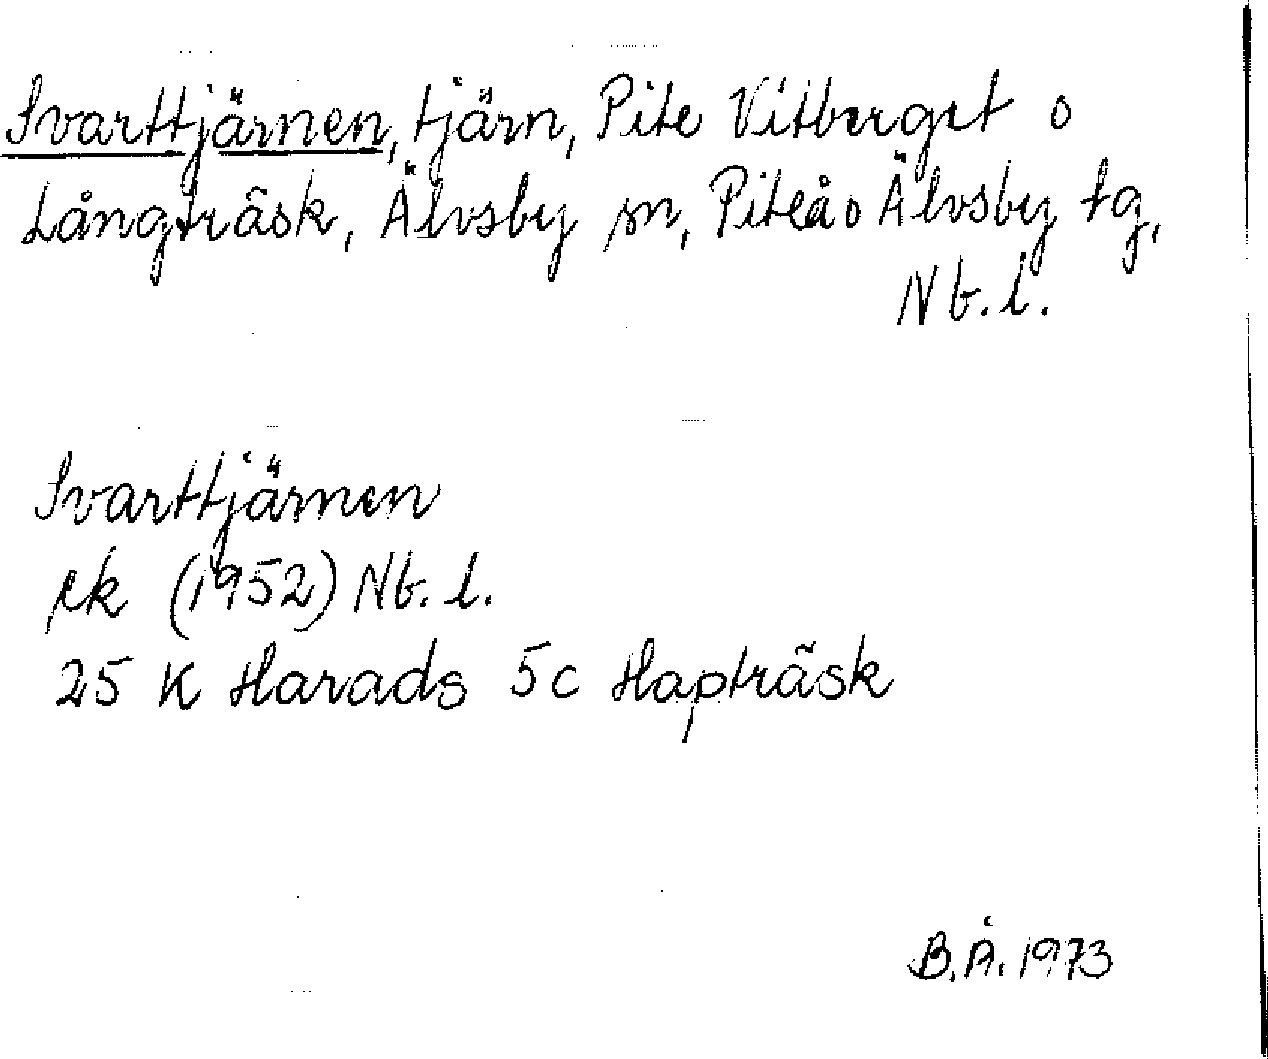 Svarttjärnen, tjärn, Pite Vitberget o
Långträsk, Älvsby sn, Piteå o Älvsby tg,
Nb. l.
Svarttjärnen
rk (1952) Nb. l.
25 K Harads 5c Hapträsk
B.Å. 1973